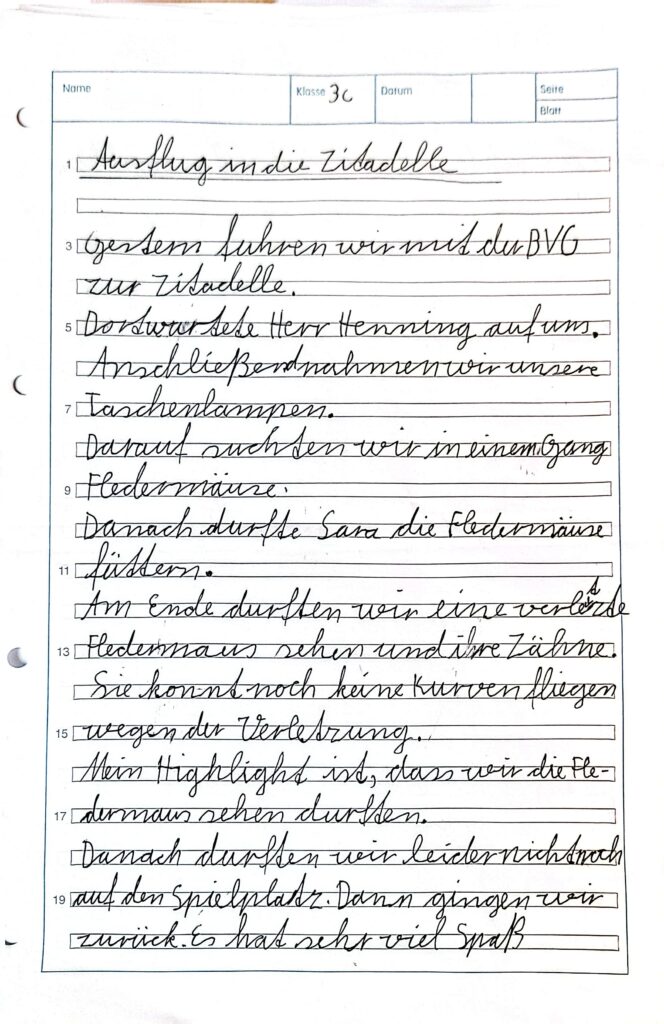 Name Klasse 3c Datum Seite
Blatt
1 Ausflug in die Zitadelle
3 Gestern fuhren wir mit der BVG
zur Zitadelle.
5 Dort wartete Herr Henning auf uns.
Anschließend nahmen wir unsere
7 Taschenlampen.
Darauf suchten wir in einem Gang
9 Fledermäuse.
Danach durfte Sara die Fledermäuse
11 füttern.
Am Ende durften wir eine verletzte
13 Fledermaus sehen und ihre Zähne.
Sie konnt noch keine Kurven fliegen
15 wegen der Verletzung.
Mein Highlight ist, dass wir die Fle-
17 dermaus sehen durften.
Danach durften wir leider nicht noch
19 auf den Spielplatz. Dann gingen wir
zurück. Es hat sehr viel Spaß